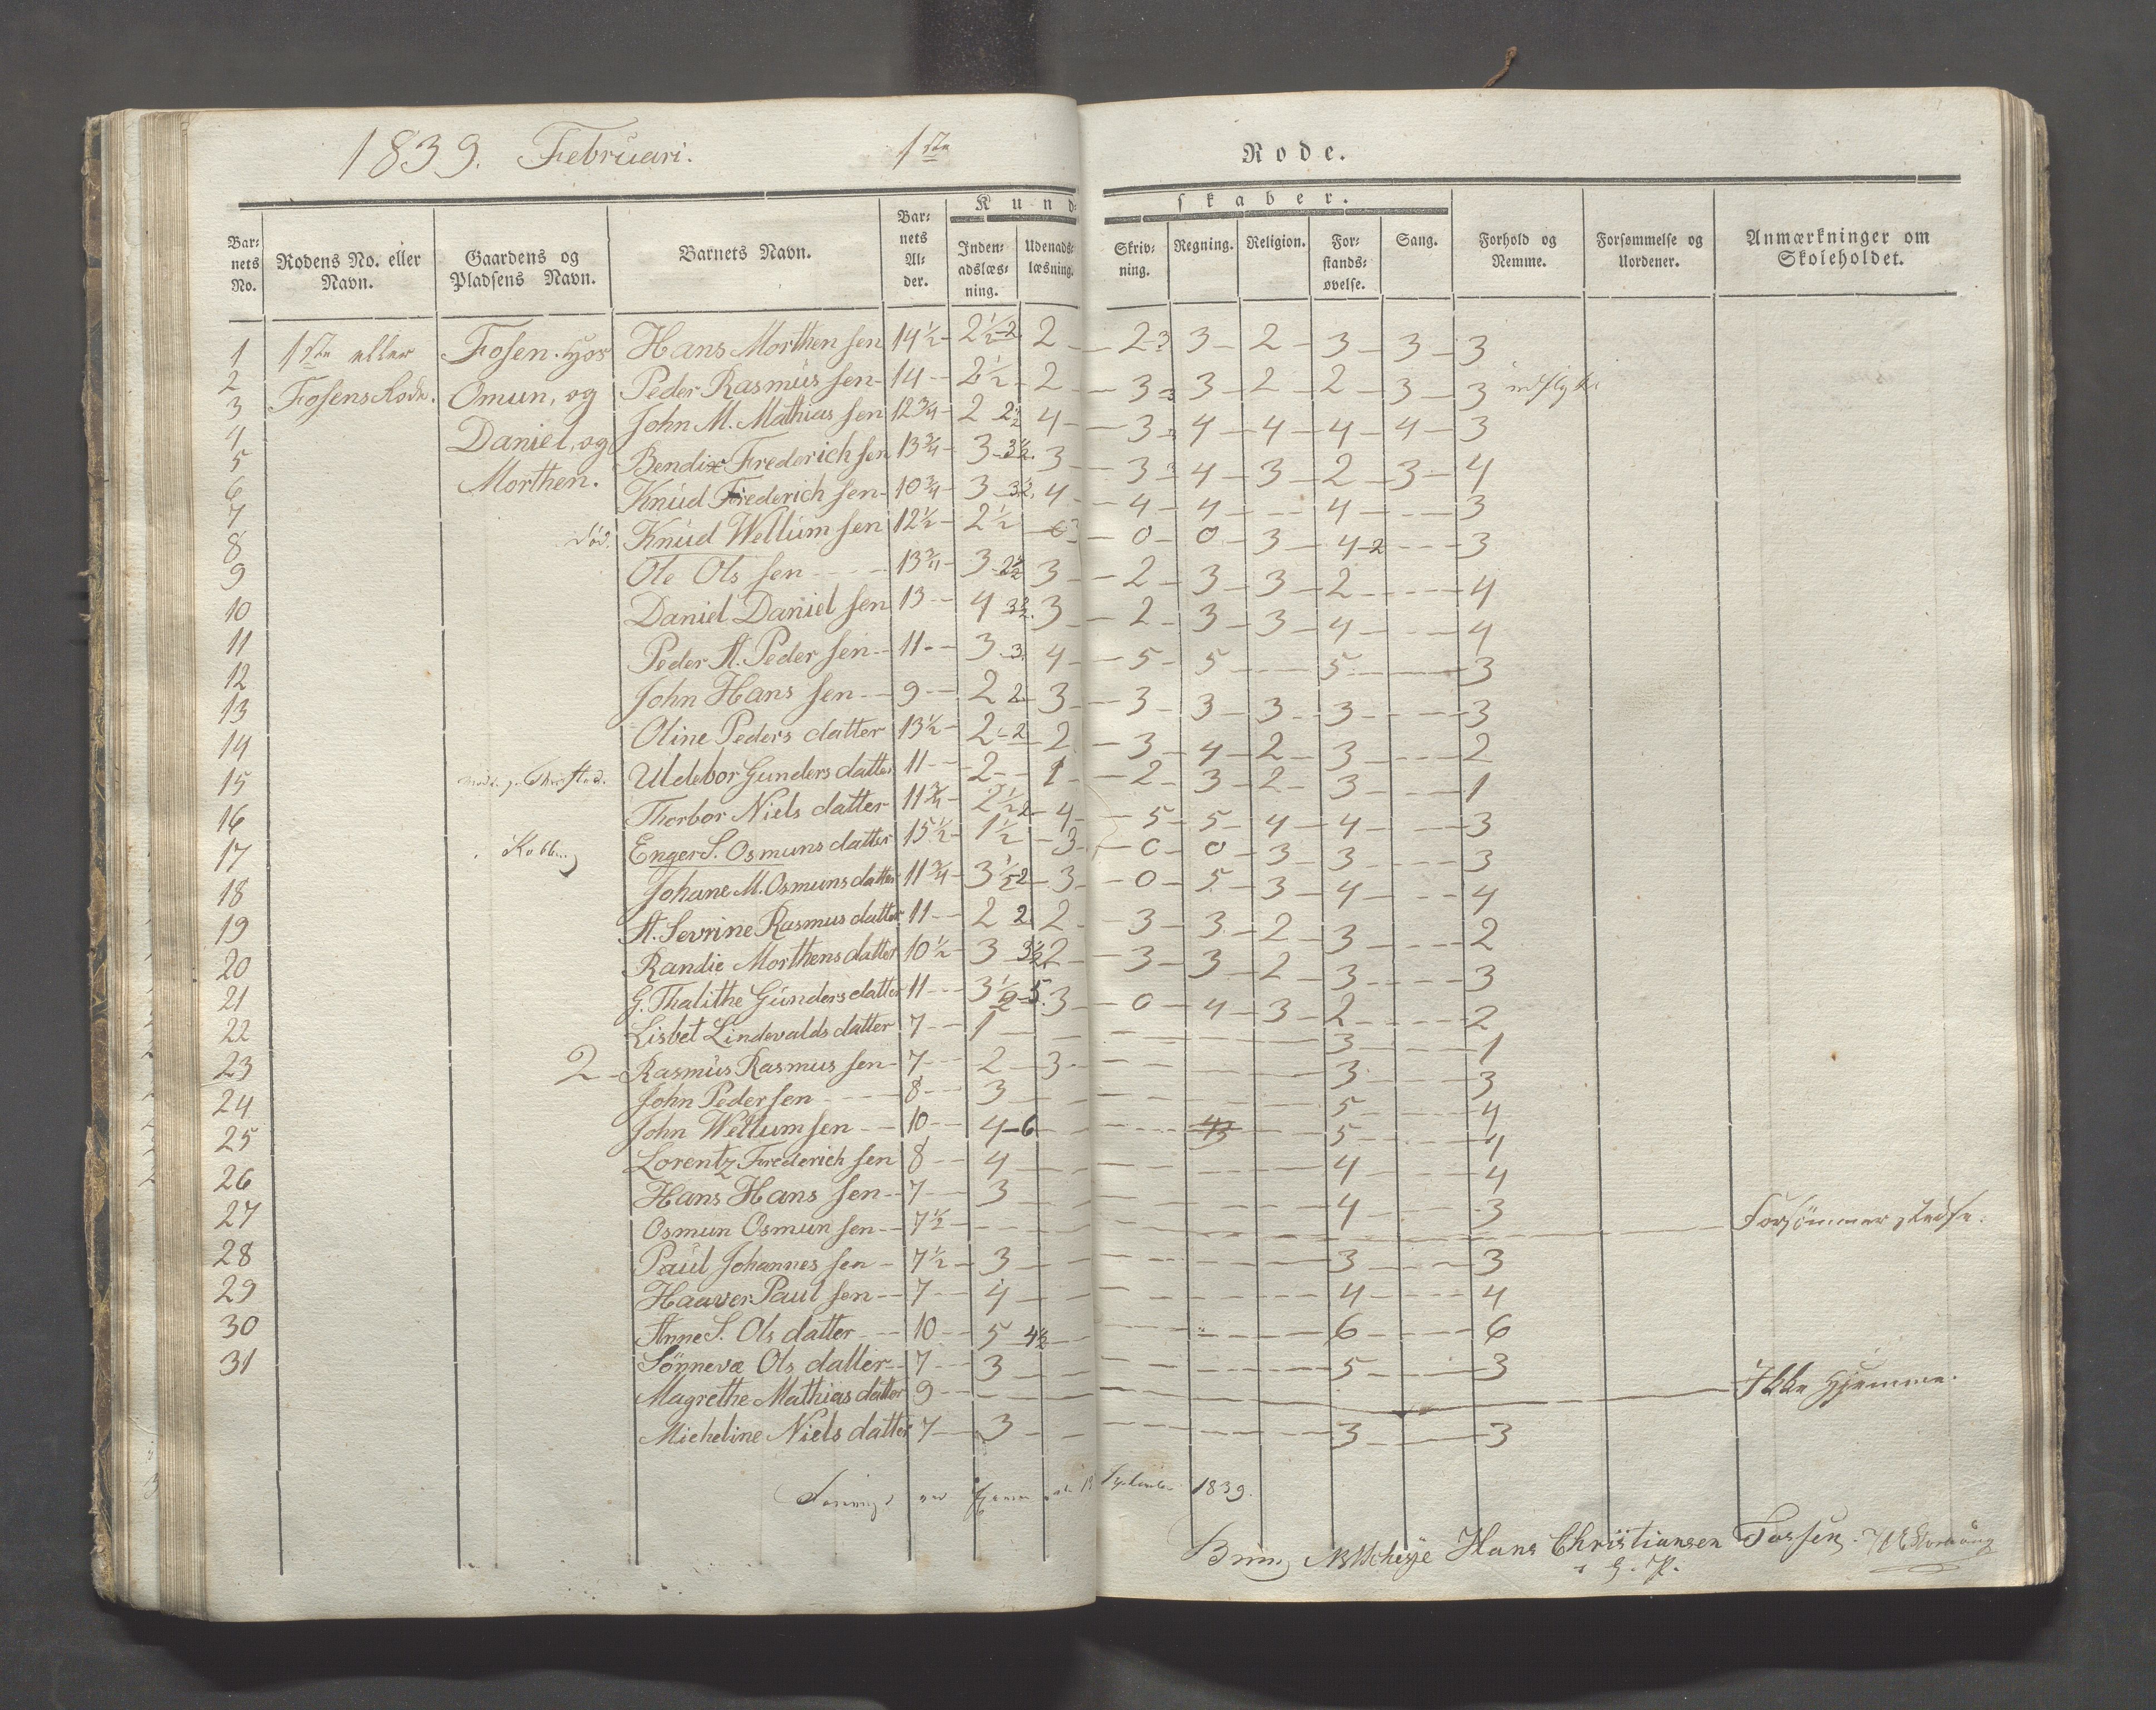 1839. Februari. 1ste Rode.
Kundskaber.
Barnets No. Rodens No. eller Navn. Gaardens og Pladsens Navn. Barnets Navn. Barnets Alder. Indenadslæsning. Udenadslæsning. Skrivning. Regning. Religion. Forstandsøvelse. Sang. Forhold og Nemme. Forsømmelse og Uordener. Anmærkninger om Skoleholdet.
1 1ste eller Fosen. Hos Hans Morthensen 14½ 2½-2 2 2 3 3 2 3 3 3
2 Fosens Rode. Omun, og Peder Rasmussen 14 2½ 2 3 3 2 2 3 3
3 Daniel, og John M. Mathiassen 12¾ 2 2½ 4 3 4 4 4 4 3
4 Morthen. Bendix Frederichsen 13¾ 3 3½ 3 3 4 3 2 3 4
5 Knud Frederichsen 10¾ 3 3½ 4 4 4 4 3
6 død. Knud Wellumsen 12½ 2½ 0 0 3 4-2 3
7 Ole Olssen 13¾ 3 2½ 3 2 3 3 2 4
8 Daniel Danielsen 13 4 3½ 3 2 3 3 4 4
9 Peder A. Pedersen 11 3 3 4 5 5 5 3
10 John Hanssen 9 2 2 3 3 3 3 3 3
11 Oline Pedersdatter 13½ 2-2 2 3 4 2 3 2
12 Uldebor Gundersdatter 11 2 1 2 3 2 3 1
13 Thorbor Nielsdatter 11¾ 2½ 2 4 5 5 4 4 3
14 Enger S. Osmunsdatter 15½ 1½ 3 0 0 3 3 3
15 Johane M. Osmunsdatter 11¾ 3½ 2 3 0 5 3 4 4
16 A. Sevrine Rasmusdatter 11 2 2 2 3 3 2 3 2
17 Randie Morthensdatter 10½ 3 3½ 2 3 3 2 3 3
18 G. Thalithe Gundersdatter 11 3½ 5 3 0 4 3 2 2
19 Lisbet Lindevaldsdatter 7 1 3 1
20 2 Rasmus Rasmussen 7 2 3 3 3
21 John Pedersen 8 3 5 4
22 John Wellumsen 10 4-6 5 4
23 Lorentz Frederichsen 8 4 4 4
24 Hans Hanssen 7 3 4 3
25 Osmun Osmunsen 7½ Forsömmer
26 Paul Johannessen 7½ 3 3 3
27 Haaver Paulsen 7 4 4 4
28 Anne S. Olsdatter 10 5 4½ 6 6
29 Sönnevæ Olsdatter 7 3 5 3
30 Magrethe Mathiasdatter 9 Ikke Hjemme.
31 Micheline Nielsdatter 7 3 3 3
September 1839.
Hans Christiansen Fossen